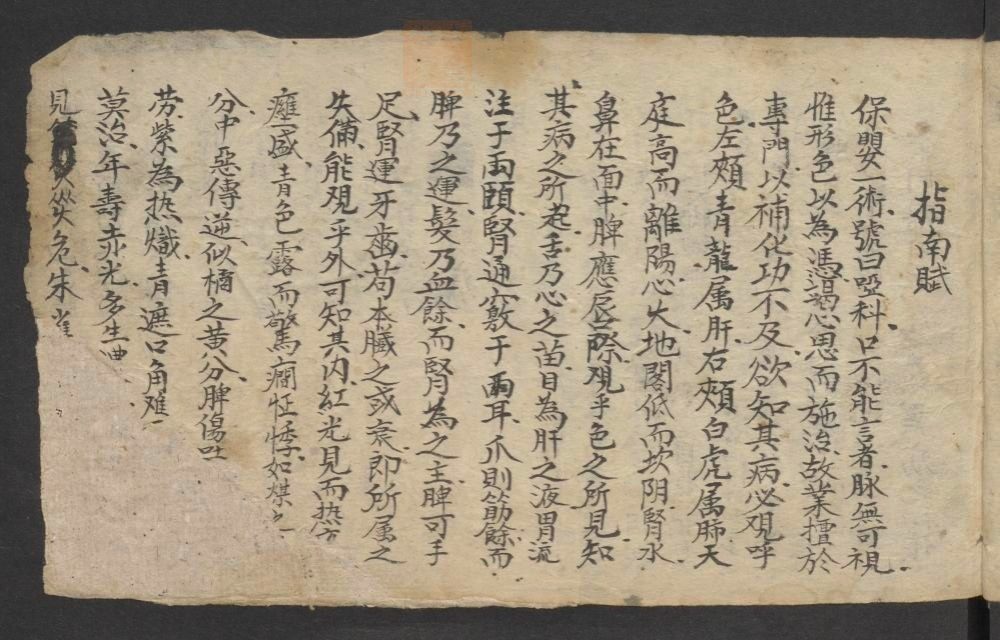 指南賦
保嬰一術號曰啞科口不能言者脉無可視
惟形色以為憑謁心思而施治故業擅於
專門以補化功不及欲知其病必观呼
色左頰青龍属肝右頰白虎属肺天
庭高而離陽心火地閣低而坎阴腎水
鼻在面中脾應唇際观乎色之所見知
其病之所起舌乃心之苗目為肝之液胃流
注于兩頤腎通竅于兩耳爪則筋餘而
脾乃之運髮乃血餘而腎為之主脾可手
足腎運牙齒苟本臟之或衰即所属之
失偹能观乎外可知其内紅光見而热
癰盛青色露而驚癎怔悸如煤之
分中惡傳逆似橘之黄分脾傷吐
劳紫為热熾青遮口角难
莫治年壽赤光多生
見危朱雀